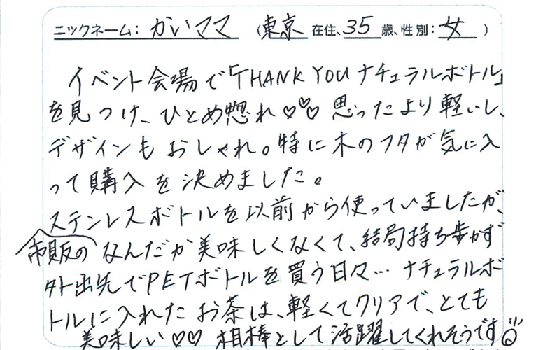 ニックネーム: かいママ (東京 在住、35 歳、性別: 女 )
イベント会場で「THANK YOU ナチュラルボトル」
を見つけ、ひとめ惚れ♡♡♡ 思ったより軽いし、
デザインもおしゃれ。特に木のフタが気に入
って購入を決めました。
ステンレスボトルを以前から使っていましたが、
市販の なんだか美味しくなくて、結局持ち歩かず
外出先でPETボトルを買う日々… ナチュラルボ
トルに入れたお茶は、軽くてクリアで、とても
美味しい♡♡ 相棒として活躍してくれそうです☺